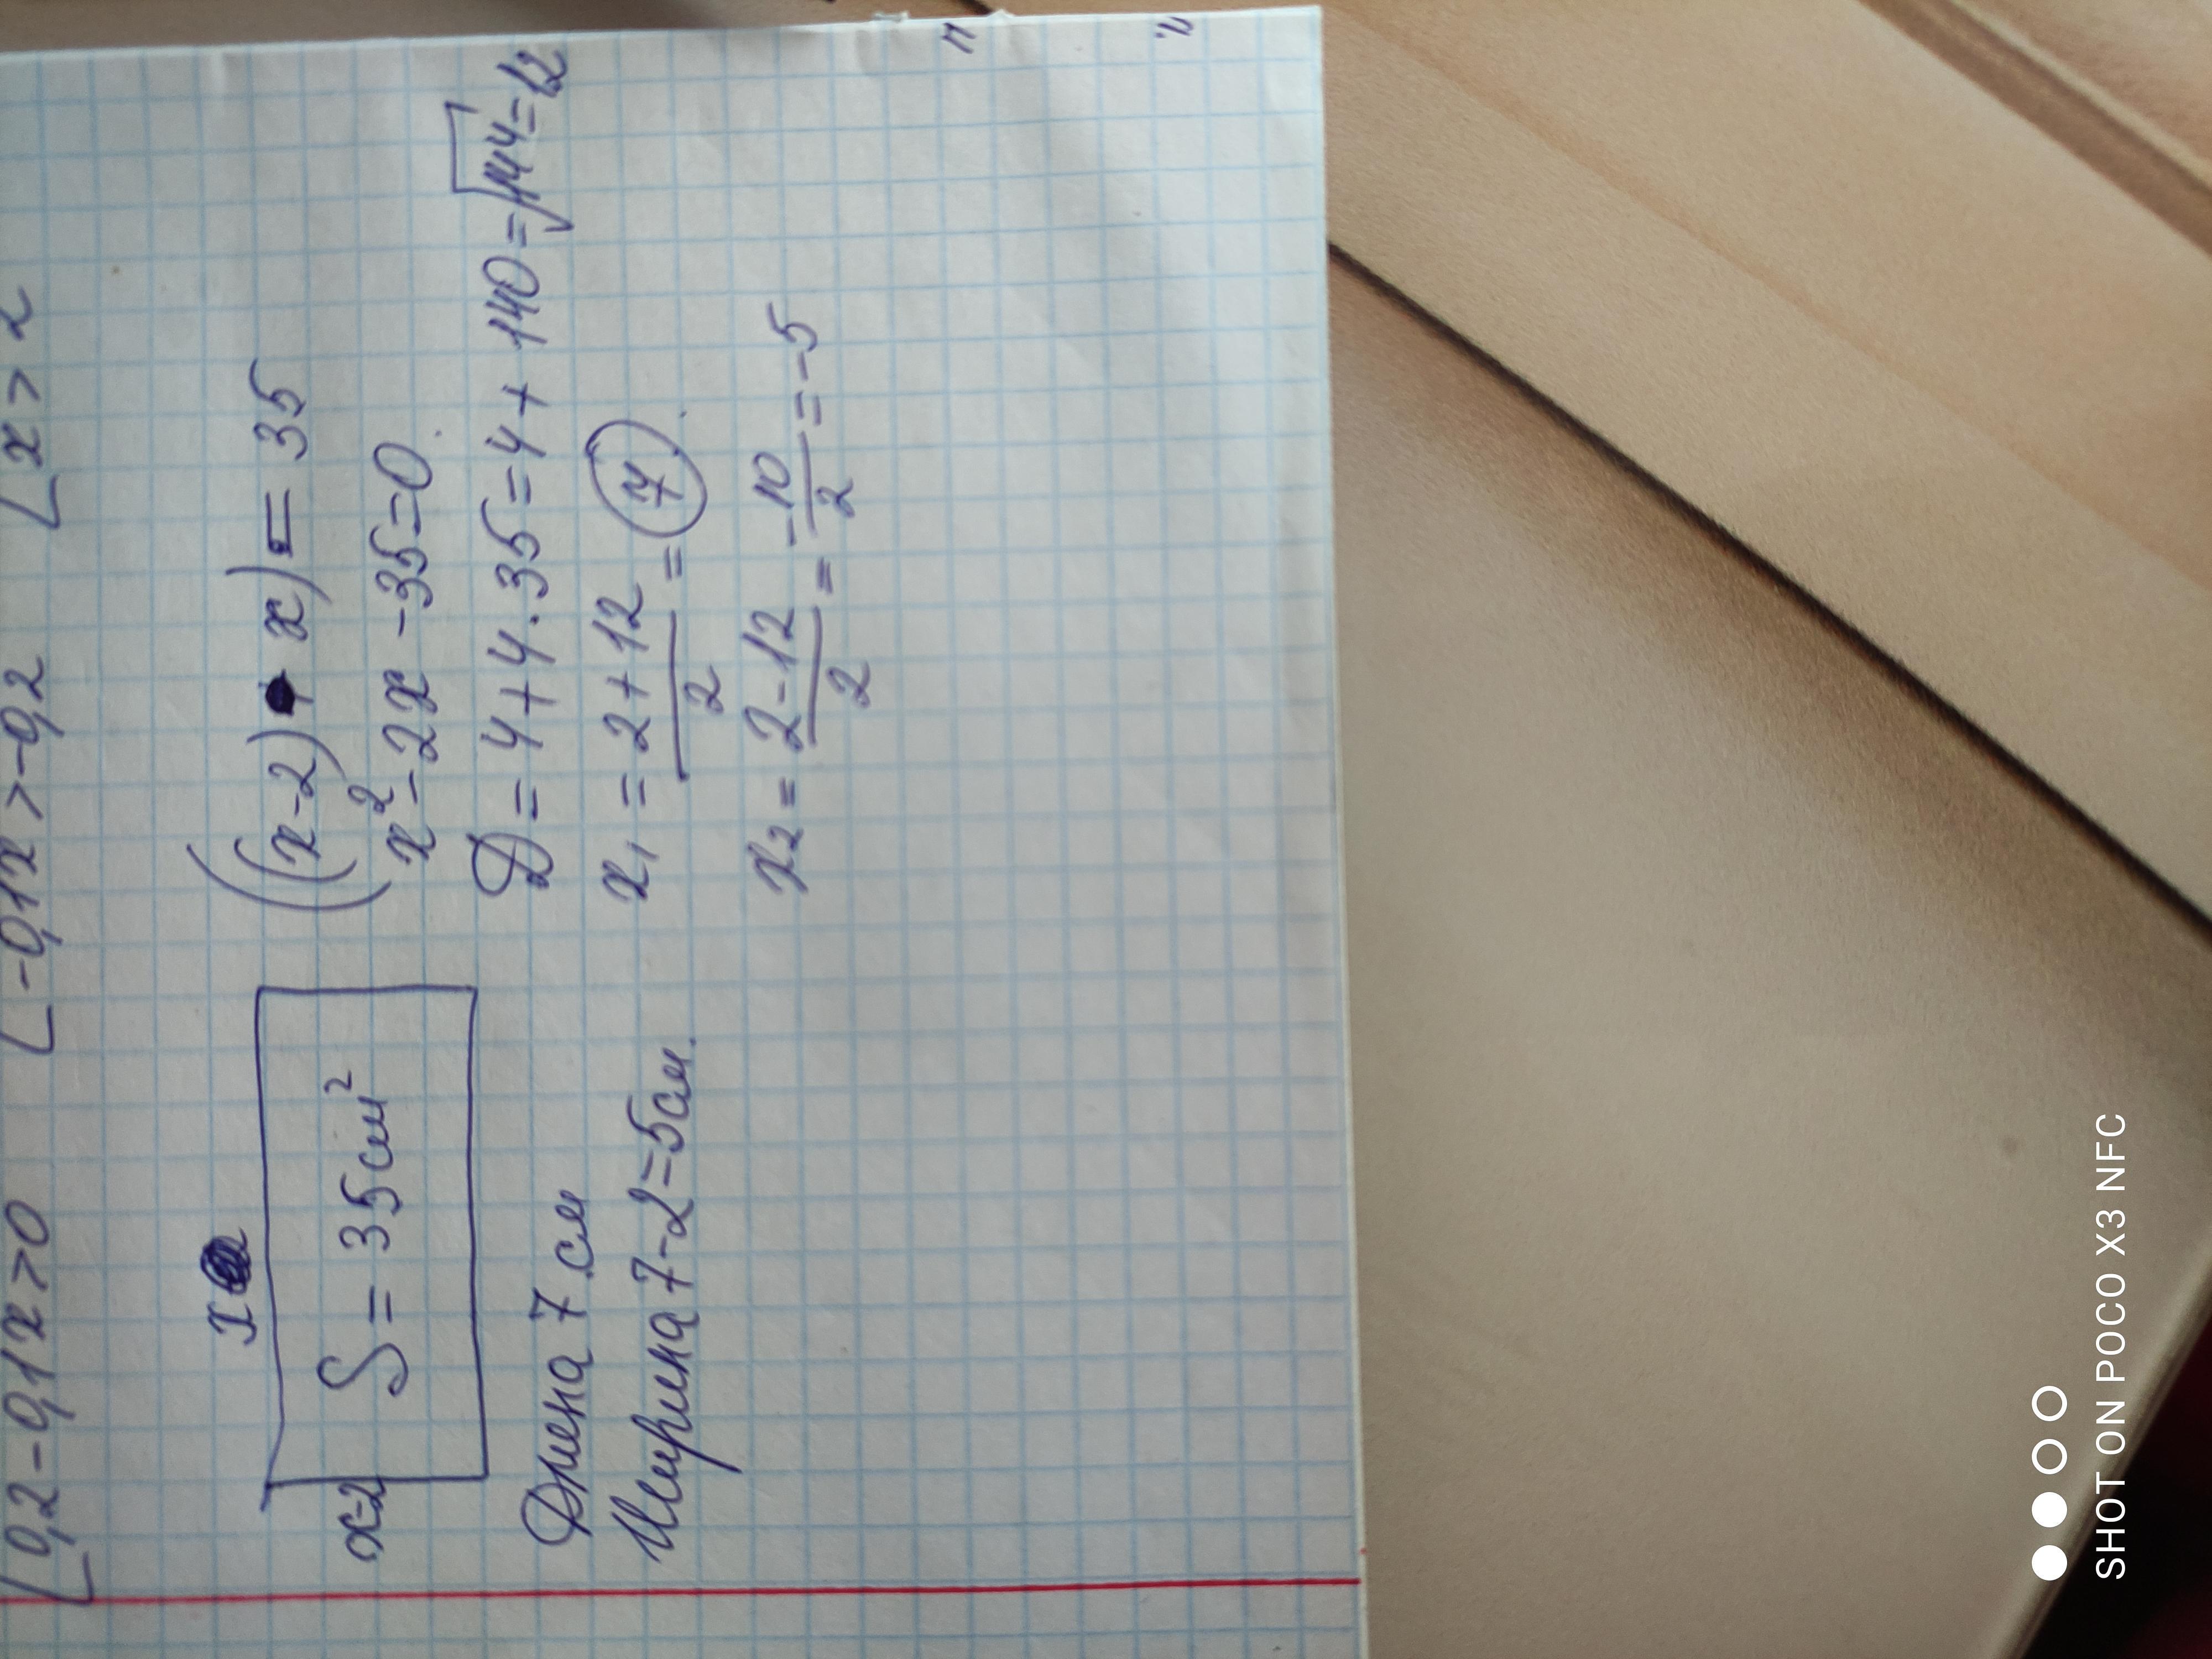 0,2-0,1x>0 -0,1x>-0,2 x>2
x
S=35см²
x-2
Длина 7 см
Ширина 7-2=5см.
((x-2)·x)=35
x²-2x-35=0
Д=4+4·35=4+140=√144=12
x₁=2+12/2=7
x₂=2-12/2=-10/2=-5
SHOT ON POCO X3 NFC